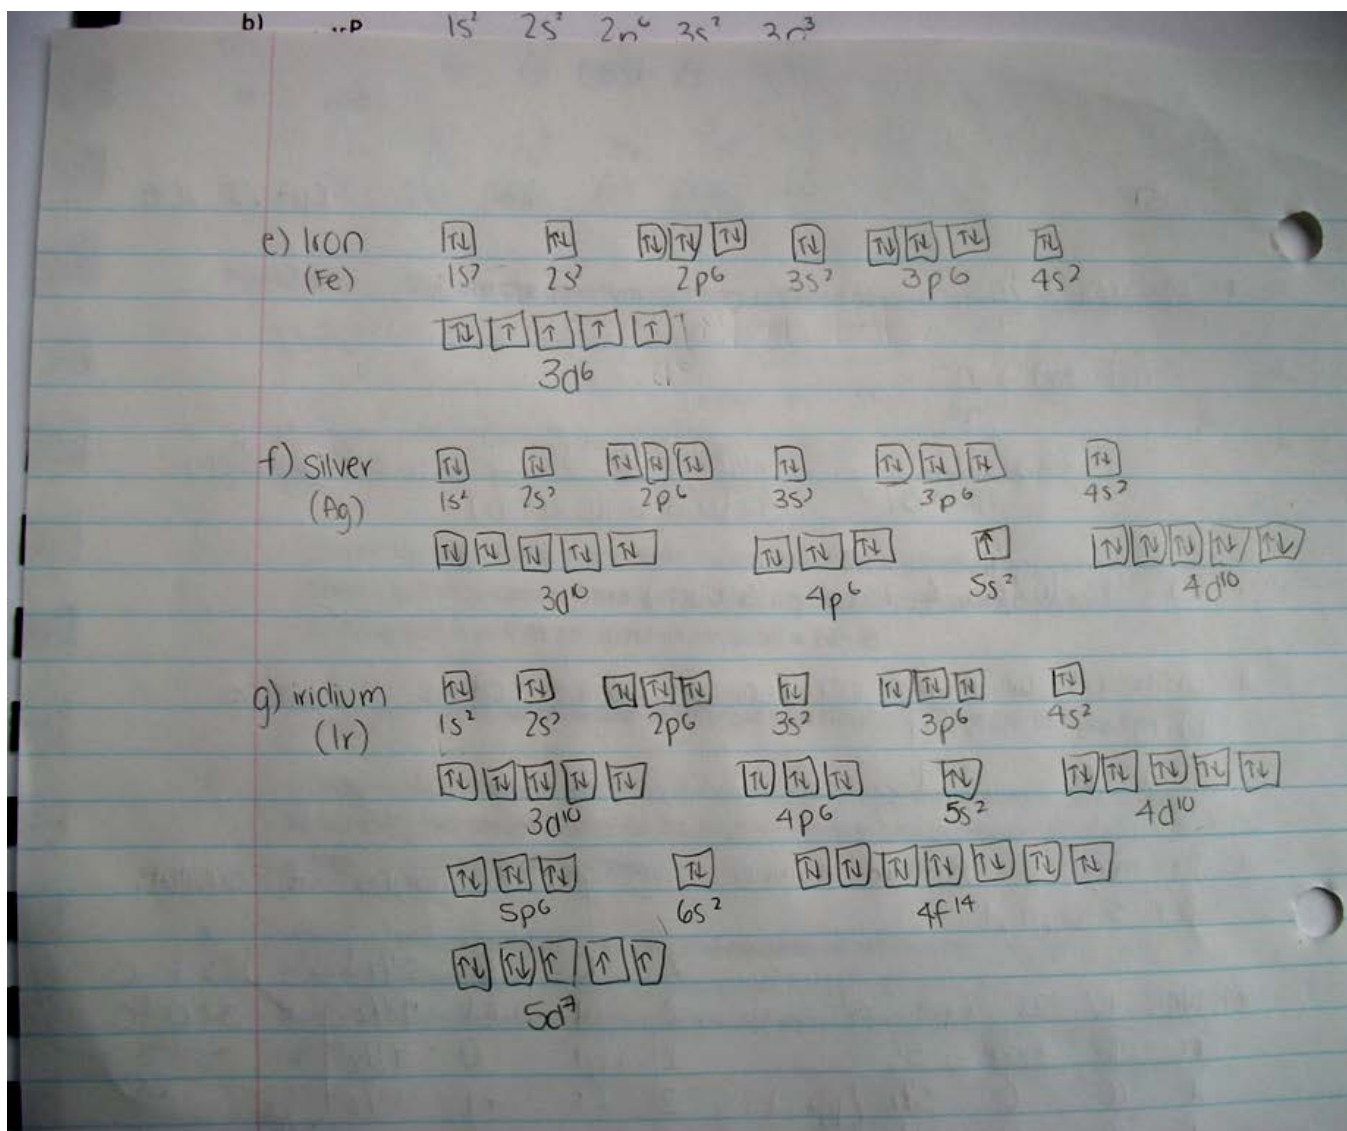 b) 1s² 2s² 2p⁶ 3s² 3p³
e) Iron ↑↓ ↑↓ ↑↓ ↑↓ ↑↓ ↑↓ ↑↓ ↑↓ ↑↓ ↑↓
(Fe) 1s² 2s² 2p⁶ 3s² 3p⁶ 4s²
↑↓ ↑ ↑ ↑ ↑
3d⁶
f) silver ↑↓ ↑↓ ↑↓ ↑↓ ↑↓ ↑↓ ↑↓ ↑↓ ↑↓ ↑↓
(Ag) 1s² 2s² 2p⁶ 3s² 3p⁶ 4s²
↑↓ ↑↓ ↑↓ ↑↓ ↑↓ ↑↓ ↑↓ ↑↓ ↑ ↑↓ ↑↓ ↑↓ ↑↓ ↑↓
3d¹⁰ 4p⁶ 5s² 4d¹⁰
g) iridium ↑↓ ↑↓ ↑↓ ↑↓ ↑↓ ↑↓ ↑↓ ↑↓ ↑↓ ↑↓
(Ir) 1s² 2s² 2p⁶ 3s² 3p⁶ 4s²
↑↓ ↑↓ ↑↓ ↑↓ ↑↓ ↑↓ ↑↓ ↑↓ ↑↓ ↑↓ ↑↓ ↑↓ ↑↓ ↑↓
3d¹⁰ 4p⁶ 5s² 4d¹⁰
↑↓ ↑↓ ↑↓ ↑↓ ↑↓ ↑↓ ↑↓ ↑↓ ↑↓ ↑↓ ↑↓
5p⁶ 6s² 4f¹⁴
↑↓ ↑↓ ↑ ↑ ↑
5d⁷